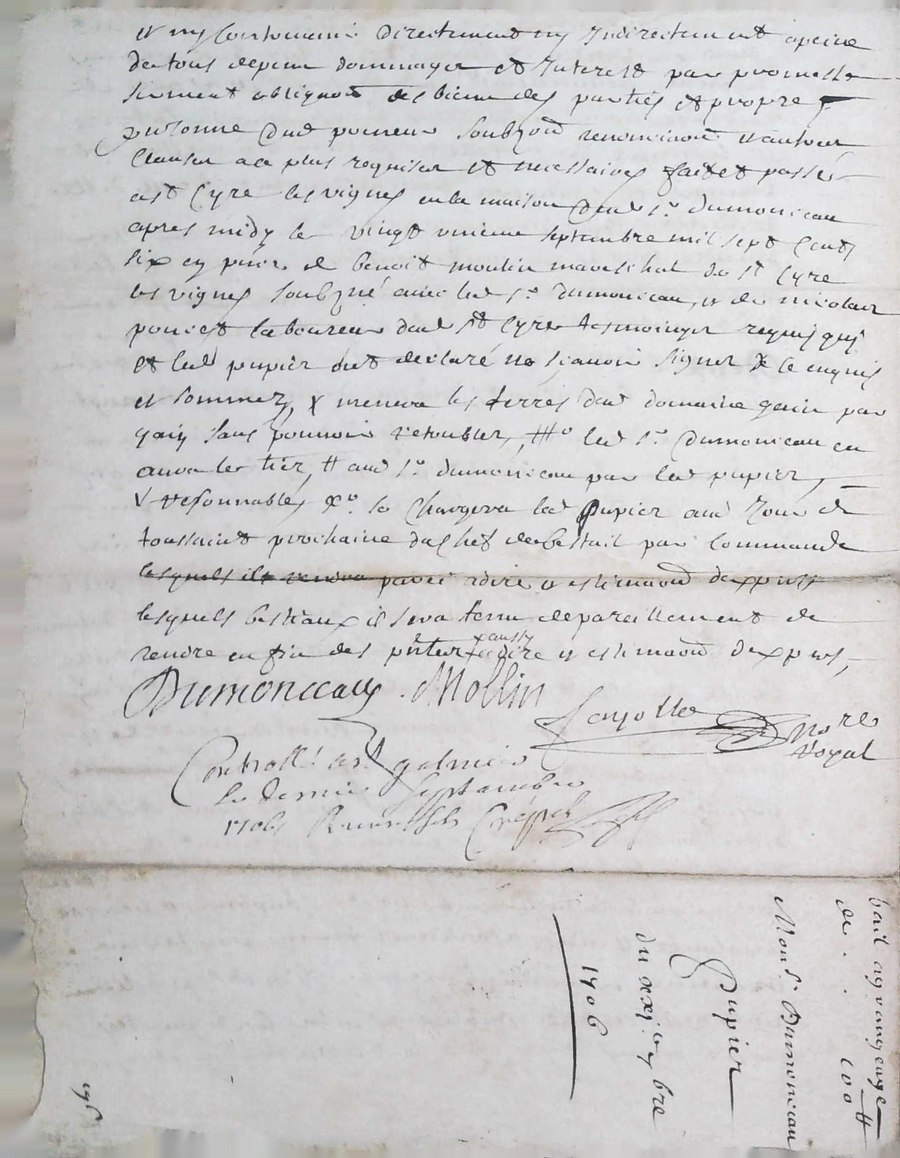 et ny contrevenir directement ny indirectement a peine
de tous depens dommages et interest par promesse
serment obligaon des biens des parties et propre
personne dud preneur soubzon renonciaon et autres
clauses a ce plus requises et necessaires fait et passé
a st Cyre les vignes en la maison dud sr. dumonceau
apres midy le vingt unieme septembre mil sept cents
six en pnce de benoit moulin mareschal de st Cyre
les vignes soubzné avec led sr. dumonceau, et de nicolas
poncet laboureur dud st Cyre tesmoings requis qui
et led pupier ont declaré ne scavoir signer de ce enquis
et sommez, x menera les terres dud domaine gain par
gain sans pouvoir retoubler, ## led sr. dumonceau en
aura le tier, # aud sr. dumonceau par led pupier,
V resonnables, se chargera led pupier au jour de
toussaint prochaine du chef de bestail par commande
lesquels il rendra pareil a dire et estimaon dexperts
lesquels bestiaux il sera tenu de pareillement de
rendre en fin des pntes aussy a dire et estimaon dexperts,
Dumonceau. Mollin
no.re
royal
Controllé a st galmier
le dernier septembre
1706 Crépet
bail a grangeage
de . . . 100 #
Mons.r Dumonceau
Pupier
du xxj.e 7bre
1706